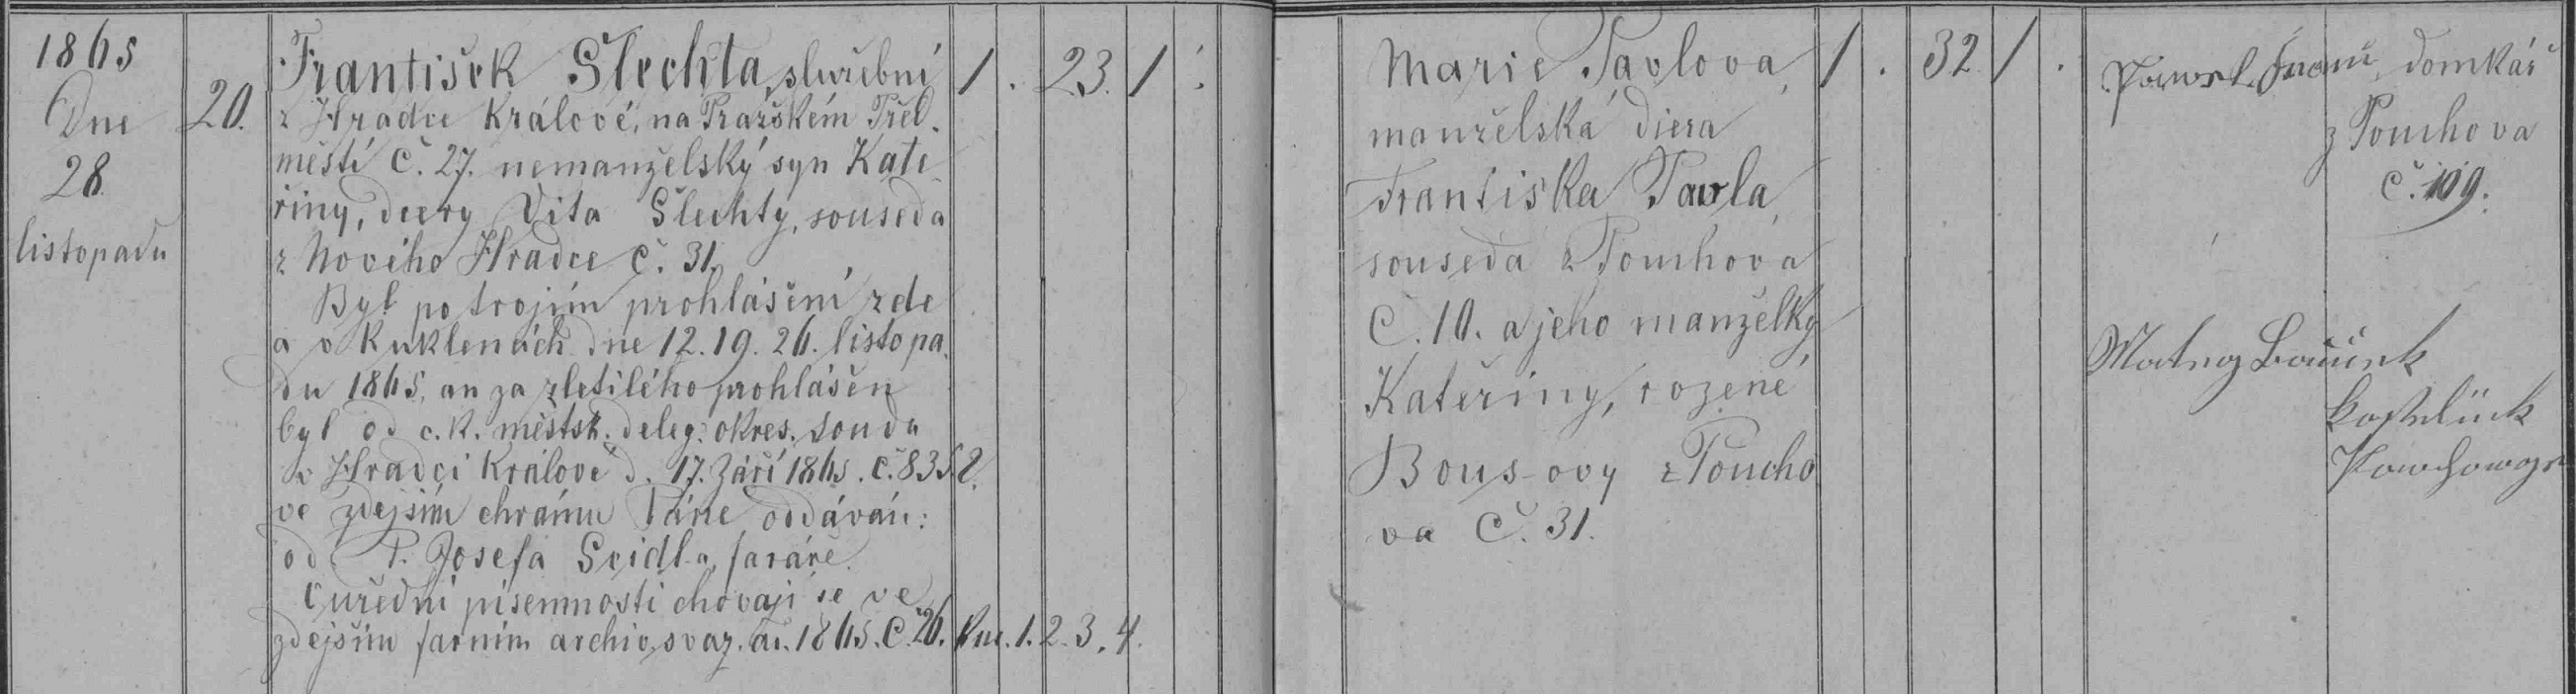 1865
Dne
28
listopadu
20.
František Šlechta, služební
z Hradce Králové, na Pražském Před-
městí č. 27. nemanželský syn Kate-
řiny, dcery Víta Šlechty, souseda
z Nového Hradce č. 31.
Byl po trojím prohlášení zde
a v Kuklenách dne 12. 19. 26. listopa-
du 1865, an za zletilého prohlášen
byl od c. k. městsk. deleg. okres. soudu
v Hradci Králové d. 17. Září 1865. č. 8352.
ve zdejším chrámu Páně oddáván:
od P. Josefa Seidl-a, faráře.
Cuřední písemnosti chovají se ve
zdejším farním archiv. svaz. 1865. č. 26. 1. 2. 3. 4.
1 . 23. 1 .
Marie Pavlova,
manželská dcera
Františka Pavla,
souseda z Pouchova
č. 10. a jeho manželky
Kateřiny, rozené
Bous-ovy z Poucho
va č. 31.
1 . 32 1 .
domkář
z Pouchova
č. 109.